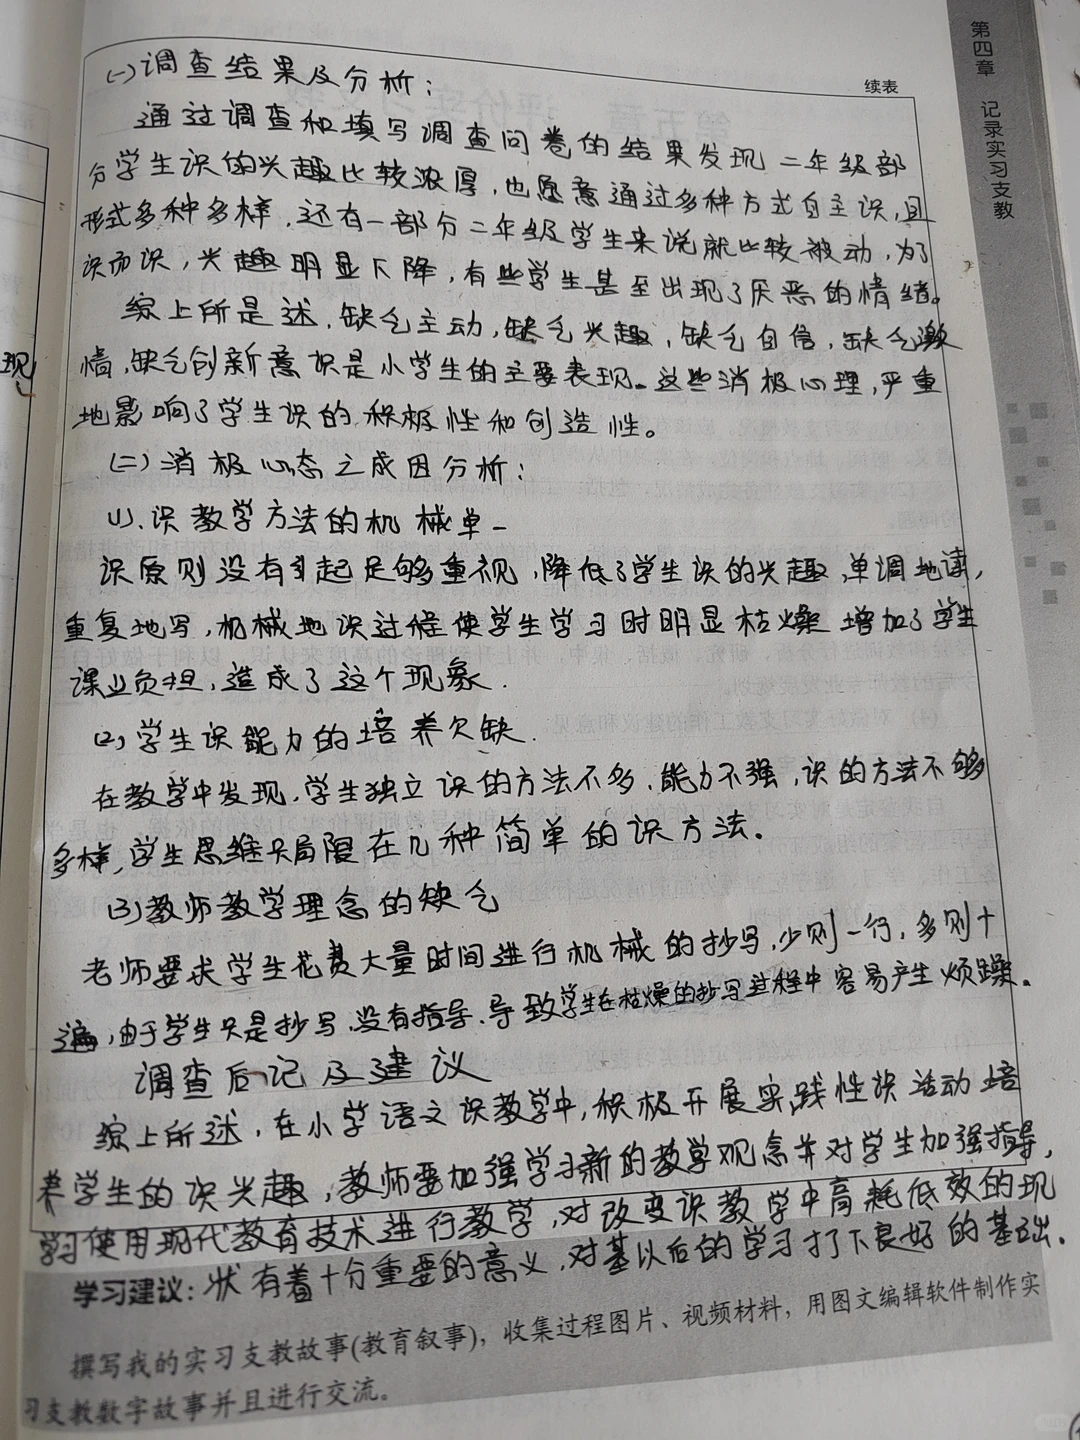 第四章 记录实习支教
续表
(一)调查结果及分析：
通过调查和填写调查问卷的结果发现二年级部
分学生识的兴趣比较浓厚，也愿意通过多种方式自主识，且
形式多种多样，还有一部分二年级学生来说就比较被动，为了
识而识，兴趣明显下降，有些学生甚至出现了厌恶的情绪。
综上所是述，缺乏主动，缺乏兴趣，缺乏自信，缺乏激
情，缺乏创新意识是小学生的主要表现。这些消极心理，严重
地影响了学生识的积极性和创造性。
(二)消极心态之成因分析：
(1).识教学方法的机械单一
识原则没有引起足够重视，降低了学生识的兴趣，单调地读，
重复地写，机械地识过程使学生学习时明显枯燥增加了学生
课业负担，造成了这个现象.
(2)学生识能力的培养欠缺.
在教学中发现，学生独立识的方法不多，能力不强，识的方法不够
多样，学生思维只局限在几种简单的识方法。
(3)教师教学理念的缺乏
老师要求学生花费大量时间进行机械的抄写，少则一行，多则十
遍，由于学生只是抄写，没有指导，导致学生在枯燥的抄写过程中容易产生烦躁。
调查后记及建议
综上所述，在小学语文识教学中，积极开展实践性识活动培
养学生的识兴趣，教师要加强学习新的教学观念并对学生加强指导，
学习使用现代教育技术进行教学，对改变识教学中高耗低效的现
学习建议：状有着十分重要的意义，对基以后的学习打下良好的基础.
撰写我的实习支教故事(教育叙事)，收集过程图片、视频材料，用图文编辑软件制作实
习支教数字故事并且进行交流。
现